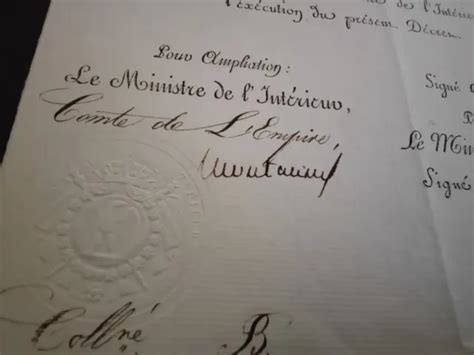 de l'Intérieur
l'exécution du présent Décret.
Pour Ampliation :
Le Ministre de l'Intérieur,
Comte de L'Empire,
Signé
Le Min
Signé
Collné
B.